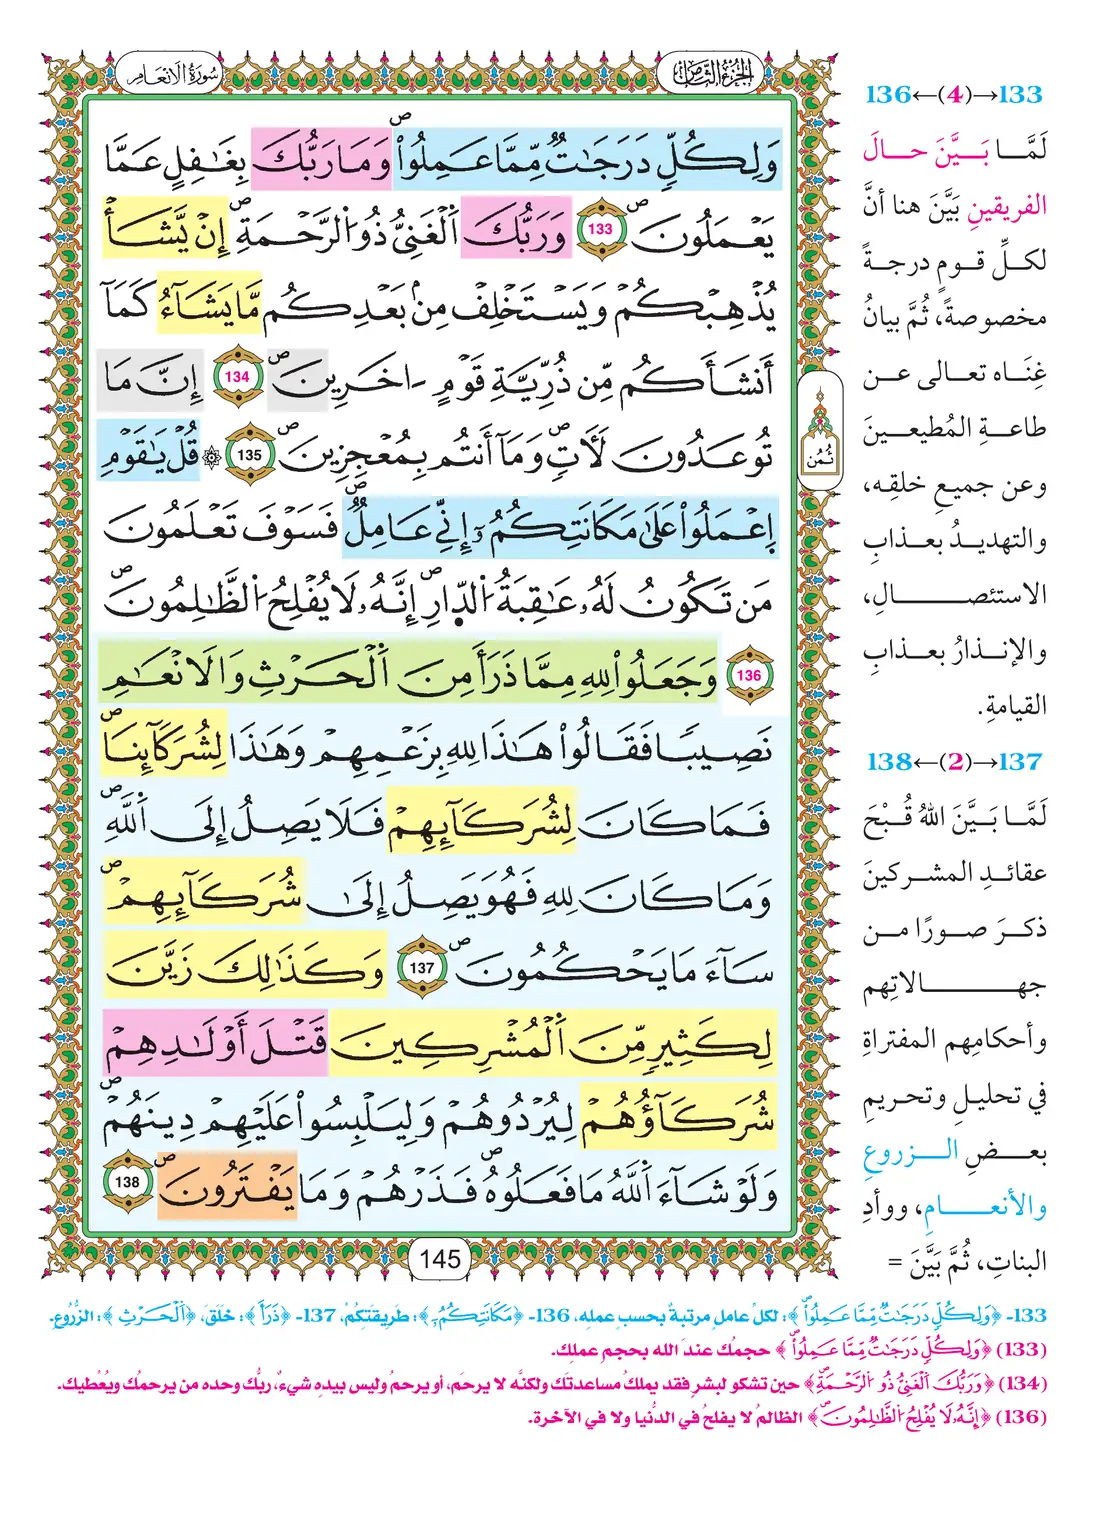 الجزء الثامن
سورة الانعام
وَلِكُلّٖ دَرَجَٰتٞ مِّمَّا عَمِلُواْۖ وَمَا رَبُّكَ بِغَٰفِلٍ عَمَّا
يَعْمَلُونَۖ 133 وَرَبُّكَ اَ۬لْغَنِيُّ ذُو اُ۬لرَّحْمَةِۖ إِنْ يَّشَأْ
يُذْهِبْكُمْ وَيَسْتَخْلِفْ مِنۢ بَعْدِكُم مَّا يَشَآءُ كَمَآ
أَنشَأَكُم مِّن ذُرِّيَّةِ قَوْمٍ ءَاخَرِينَۖ 134 إِنَّ مَا
تُوعَدُونَ لَأٓتٖۖ وَمَآ أَنتُم بِمُعْجِزِينَۖ 135 ۞ قُلْ يَٰقَوْمِ
اِ۪عْمَلُواْ عَلَىٰ مَكَانَتِكُمُۥٓ إِنِّے عَامِلٞۖ فَسَوْفَ تَعْلَمُونَ
مَن تَكُونُ لَهُۥ عَٰقِبَةُ اُ۬لدّ۪ارِۖ إِنَّهُۥ لَا يُفْلِحُ اُ۬لظَّٰلِمُونَۖ
136 وَجَعَلُواْ لِلهِ مِمَّا ذَرَأَ مِنَ اَ۬لْحَرْثِ وَالَانْعَٰمِ
نَصِيبٗا فَقَالُواْ هَٰذَا لِلهِ بِزَعْمِهِمْ وَهَٰذَا لِشُرَكَآئِنَاۖ
فَمَا كَانَ لِشُرَكَآئِهِمْ فَلَا يَصِلُ إِلَى اَ۬للَّهِۖ
وَمَا كَانَ لِلهِ فَهُوَ يَصِلُ إِلَىٰ شُرَكَآئِهِمْۖ
سَآءَ مَا يَحْكُمُونَۖ 137 وَكَذَٰلِكَ زَيَّنَ
لِكَثِيرٖ مِّنَ اَ۬لْمُشْرِكِينَ قَتْلَ أَوْلَٰدِهِمْ
شُرَكَآؤُهُمْ لِيُرْدُوهُمْ وَلِيَلْبِسُواْ عَلَيْهِمْ دِينَهُمْۖ
وَلَوْ شَآءَ اَ۬للَّهُ مَا فَعَلُوهُۖ فَذَرْهُمْ وَمَا يَفْتَرُونَۖ 138
ثُمُن
145
133→(4)←136
لَمَّا بَيَّنَ حالَ
الفريقينِ بَيَّنَ هنا أنَّ
لكلِّ قومٍ درجةً
مخصوصةً، ثُمَّ بيانُ
غِنَاه تعالى عن
طاعةِ المُطيعينَ
وعن جميعِ خلقِه،
والتهديدُ بعذابِ
الاستئصالِ،
والإنذارُ بعذابِ
القيامةِ.
137→(2)←138
لَمَّا بَيَّنَ اللهُ قُبْحَ
عقائدِ المشركينَ
ذكرَ صورًا من
جهالاتِهم
وأحكامِهم المفتراةِ
في تحليلِ وتحريمِ
بعضِ الزروعِ
والأنعامِ، ووأدِ
البناتِ، ثُمَّ بَيَّنَ =
133- ﴿وَلِكُلّٖ دَرَجَٰتٞ مِّمَّا عَمِلُواْۖ﴾: لكلِّ عاملٍ مرتبةٌ بحسبِ عملِهِ، 136- ﴿مَكَانَتِكُمُۥٓ﴾: طَرِيقَتِكُمْ، 137- ﴿ذَرَأَ﴾: خَلَقَ، ﴿اَ۬لْحَرْثِ﴾: الزُّرُوعِ.
(133) ﴿وَلِكُلّٖ دَرَجَٰتٞ مِّمَّا عَمِلُواْۖ﴾ حجمُك عندَ الله بحجمِ عملِك.
(134) ﴿وَرَبُّكَ اَ۬لْغَنِيُّ ذُو اُ۬لرَّحْمَةِۖ﴾ حين تشكو لبشرٍ فقد يملكُ مساعدتَك ولكنَّه لا يرحَم، أو يرحمُ وليس بيدِهِ شيءٌ، ربُّك وحده من يرحمُك ويُعْطيك.
(136) ﴿إِنَّهُۥ لَا يُفْلِحُ اُ۬لظَّٰلِمُونَۖ﴾ الظالمُ لا يفلحُ في الدُّنيا ولا في الآخرة.